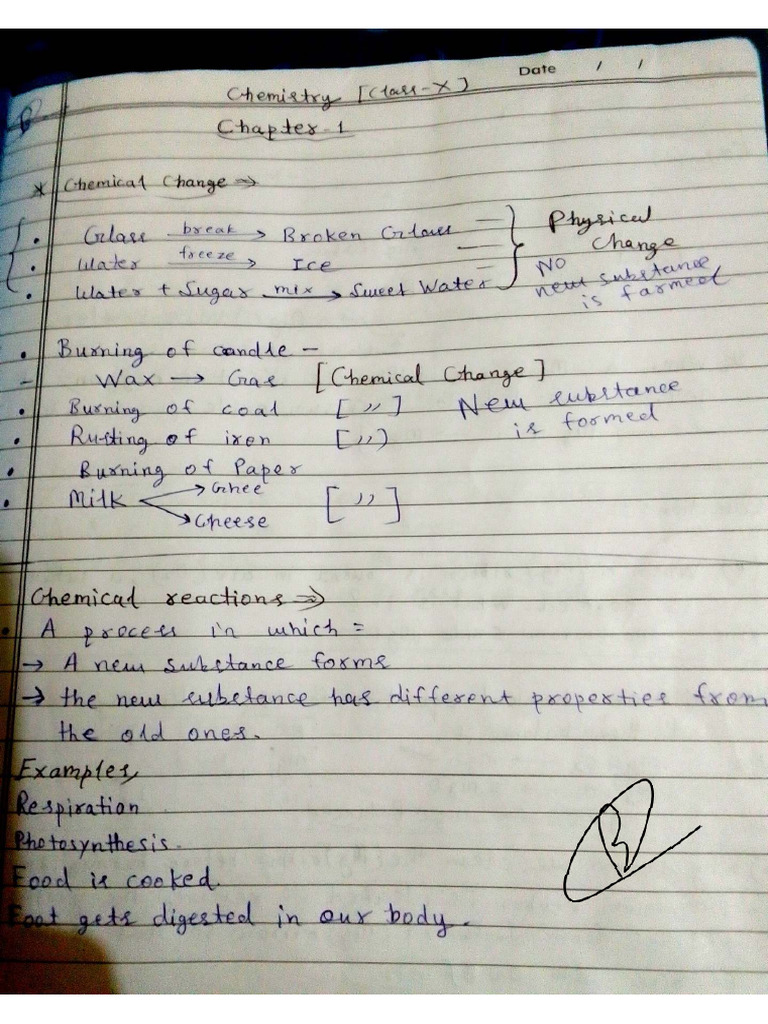 Date / /
Chemistry [Class-X]
Chapter-1
* Chemical Change ⇒
• Glass break → Broken Glass
• Water freeze → Ice
• Water + Sugar mix → Sweet Water
Physical
Change
No
new substance
is farmed
• Burning of candle –
– Wax → Gas [Chemical Change]
• Burning of coal [ ,, ] New substance
is formed
• Rusting of iren [ ,, ]
• Burning of Paper
• Milk → Ghee [ ,, ]
→ Cheese
Chemical reactions ⇒
• A process in which =
→ A new substance forms
→ the new substance has different properties from
the old ones.
Examples,
Respiration
Photosynthesis.
Food is cooked.
Foot gets digested in our body.